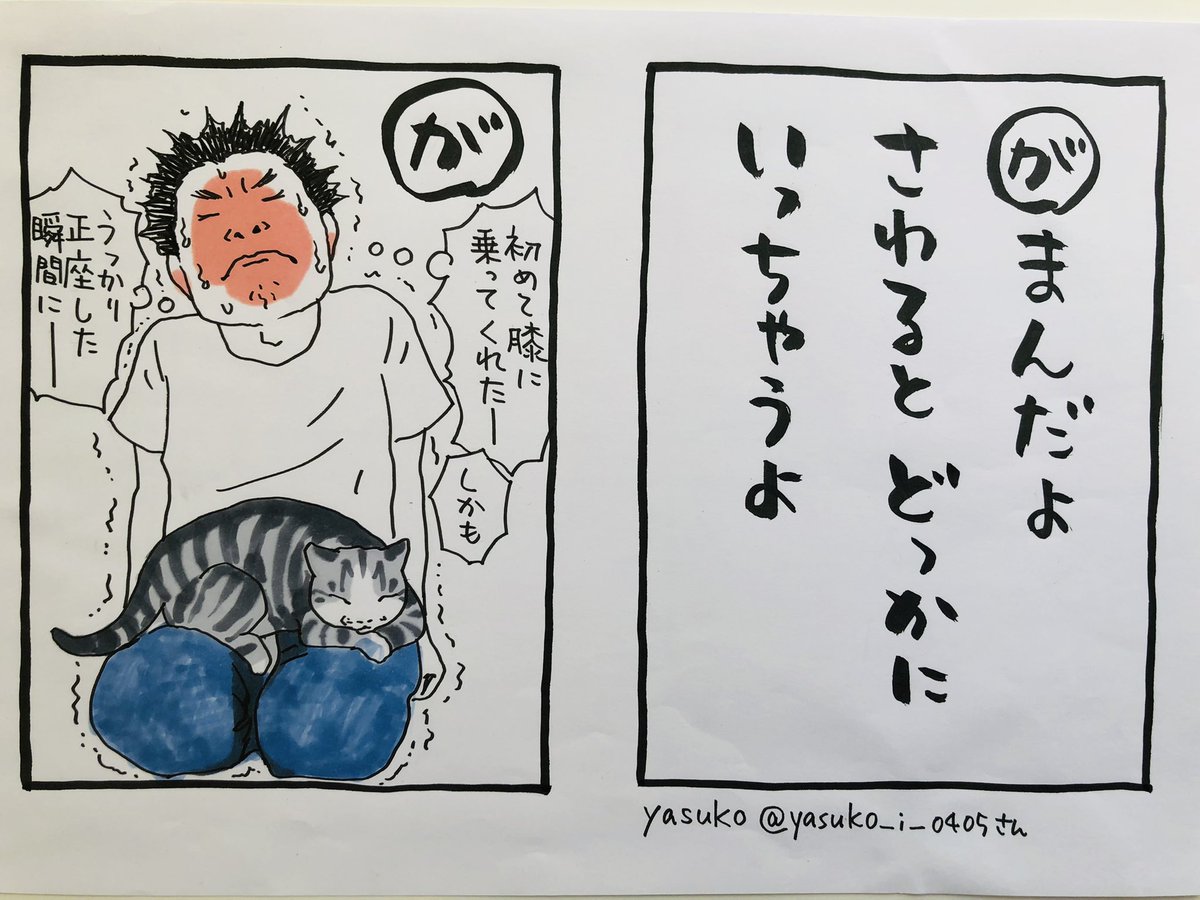 が
初めて膝に
乗ってくれたー
しかも
うっかり
正座した
瞬間にー
がまんだよ
さわると どっかに
いっちゃうよ
yasuko @yasuko_i_0405さん